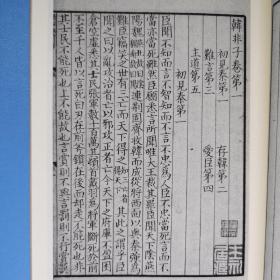 韓非子卷第一
初見秦第一　存韓第二
難言第三　愛臣第四
主道第五
初見秦第一
臣聞不知而言不智知而不言不忠爲人臣不忠當死言而不
當亦當死雖然臣願悉言所聞唯大王裁其罪臣聞天下陰燕
陽魏連荊固齊收韓而成從將西面以與秦強
爲難臣竊笑之世有三亡而天下得之其此之謂乎臣
聞之曰以亂攻治者亡以邪攻正者亡今天下之府庫不盈囷
倉空虛悉其士民張軍數十百萬其頓首戴羽爲將軍斷死於前
不至千人皆以言死白刃在前斧鑕在後而却走不能死也
其士民不能死也上不能故也言賞則不與言罰則不行賞罰